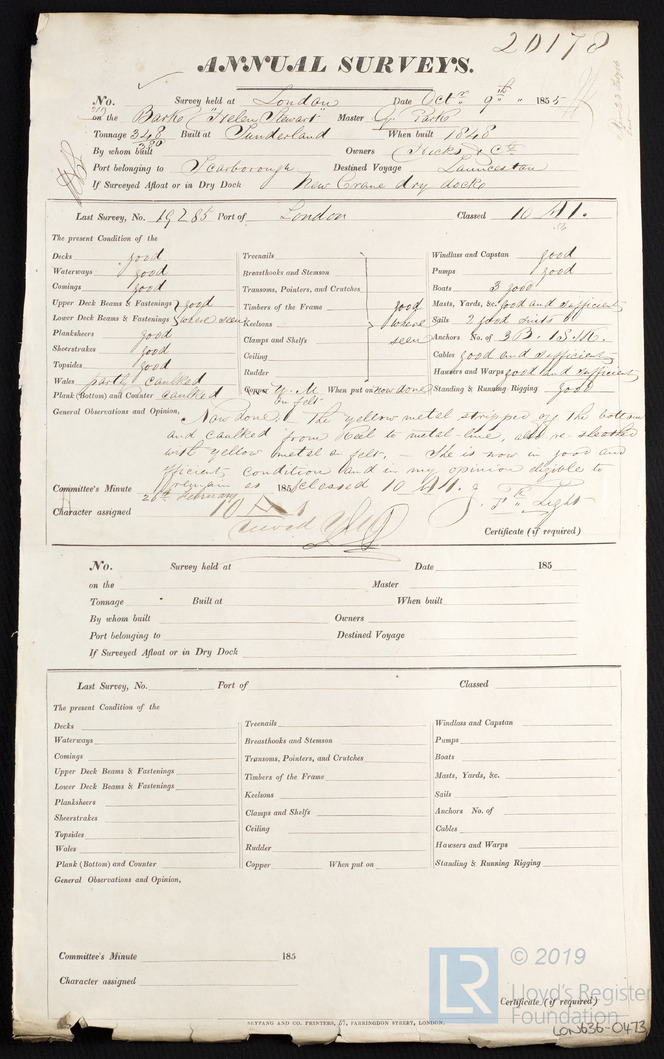 20178
ANNUAL SURVEYS.
No. Survey held at London Date Octr. 9th 1855
on the Barke "Helen Stewart" Master G. Parke
Tonnage 348 Built at Sunderland When built 1848
380
By whom built Owners Hicks & Co
Port belonging to Scarborough Destined Voyage Launceston
If Surveyed Afloat or in Dry Dock New Crane dry docks
Last Survey, No. 19285 Port of London Classed 10 A1.
The present Condition of the
Decks good
Waterways good
Comings good
Upper Deck Beams & Fastenings good
Lower Deck Beams & Fastenings where seen
Planksheers good
Sheerstrakes good
Topsides good
Wales partly caulked
Plank (Bottom) and Counter caulked
Treenails
Breasthooks and Stemson
Transoms, Pointers, and Crutches
Timbers of the Frame good
Keelsons where
Clamps and Shelfs seen
Ceiling
Rudder
Copper Y. M. When put on now done
on felt
Windlass and Capstan good
Pumps good
Boats 3 good
Masts, Yards, &c. good and sufficient
Sails 2 good suits of
Anchors No. of 3B. 1S. 1K.
Cables good and sufficient
Hawsers and Warps good and sufficient
Standing & Running Rigging good
General Observations and Opinion, Now done. The yellow metal stripped off the bottom
and caulked from keel to metal-line, also re-sheathed
with yellow metal on felt. – She is now in good and
efficient condition and in my opinion eligible to
remain as classed 10 A1.
Committee's Minute 26th February 185
Character assigned 10 A 1
Light
Certificate (if required)
No. Survey held at Date 185
on the Master
Tonnage Built at When built
By whom built Owners
Port belonging to Destined Voyage
If Surveyed Afloat or in Dry Dock
Last Survey, No. Port of Classed
The present Condition of the
Decks
Waterways
Comings
Upper Deck Beams & Fastenings
Lower Deck Beams & Fastenings
Planksheers
Sheerstrakes
Topsides
Wales
Plank (Bottom) and Counter
Treenails
Breasthooks and Stemson
Transoms, Pointers, and Crutches
Timbers of the Frame
Keelsons
Clamps and Shelfs
Ceiling
Rudder
Copper When put on
Windlass and Capstan
Pumps
Boats
Masts, Yards, &c.
Sails
Anchors No. of
Cables
Hawsers and Warps
Standing & Running Rigging
General Observations and Opinion,
Committee's Minute 185
Character assigned
Certificate (if required)
SEYFANG AND CO. PRINTERS, 57, FARRINGDON STREET, LONDON.
LR © 2019
Lloyd's Register
Foundation
LON636-0473